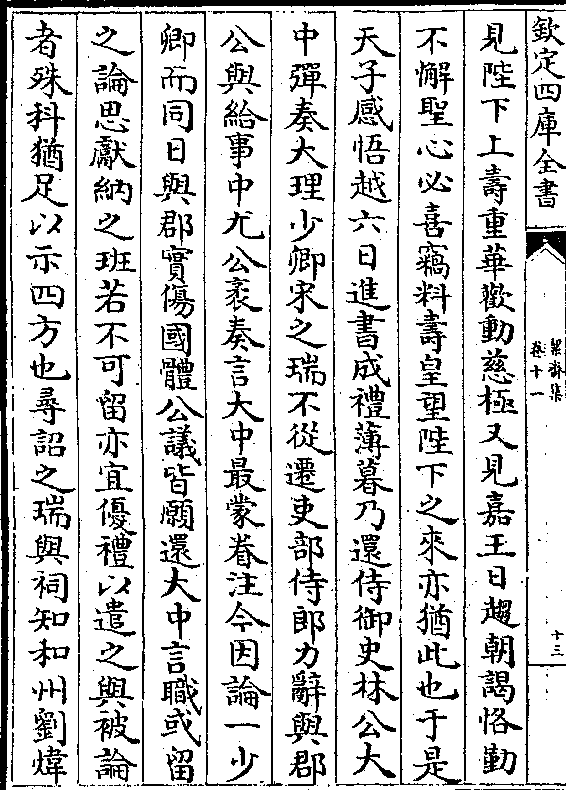 欽定四庫全書
絜齋集
卷十一
十三
見陛下上壽重華歡動慈極又見嘉王日趨朝謁恪勤
不懈聖心必喜竊料壽皇望陛下之來亦猶此也于是
天子感悟越六日進書成禮薄暮乃還侍御史林公大
中彈奏大理少卿宋之瑞不從遷吏部侍郎力辭與郡
公與給事中尤公袤奏言大中最蒙眷注今因論一少
卿而同日與郡實傷國體公議皆願還大中言職或留
之論思獻納之班若不可留亦宜優禮以遣之與被論
者殊科猶足以示四方也尋詔之瑞與祠知和州劉煒